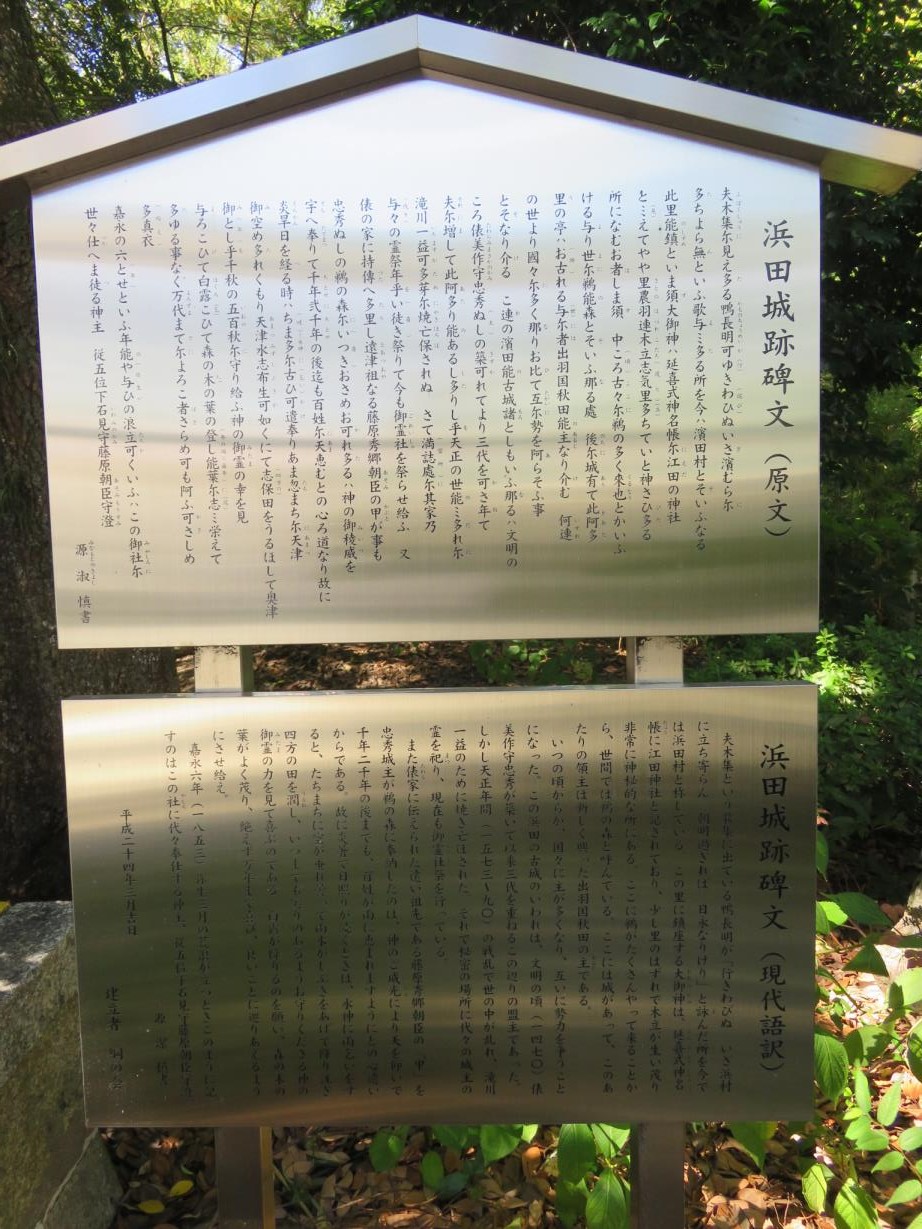 浜田城跡碑文（原文）
夫木集尓見え多る鴨長明可ゆきわひぬいさ濱むら尓
多ちよら無といふ歌与ミ多る所を今ハ濱田村とそいふなる
此里能鎮といま須大御神ハ延喜式神名帳尓江田の神社
と三えてやや里農羽連木立志気里多ちていと神さひ多る
所になむお者しま須 中ころ古々尓鵜の多く来也とかいふ
ける与り世尓鵜能森とそいふ那る處 後尓城有て此阿多
里の亭ハお古れる与尓者出羽国秋田能主なり介む 何連
の世より國々尓多く那りお比て互尓勢を阿らそふ事
とそなり介る この連の濱田能古城諸としもいふ那るハ文明の
ころ俵美作守忠秀ぬしの築可れてより三代を可さ年て
夫尓増して此阿多り能あるし多りし乎天正の世能ミ多れ尓
滝川一益可多芽尓焼亡保されぬ さて満誌處尓其家乃
与々の霊祭年乎い徒き祭りて今も御霊社を祭らせ給ふ 又
俵の家に持傳へ多里し遠津祖なる藤原秀郷朝臣の甲が事も
忠秀ぬしの鵜の森尓いつきおさめお可れ多るハ神の御稜威を
宇へ奉りて千年弐千年の後迄も百姓尓天恵むとの心ろ道なり故に
炎旱日を経る時ハちま多尓古ひ可遣奉りあま忽まち尓天津
御空め多れくもり天津水志布生可如くにて志保田をうるほして奥津
御とし乎千秋の五百秋尓守り給ふ神の御霊の幸を見
与ろこひて白露こひて森の木の葉の登し能葉尓志ミ栄えて
多ゆる事なく万代まて尓よろこ者さらめ可も阿ふ可さしめ
多真衣
嘉永の六とせといふ年能や与ひの浪立可くいふハこの御社尓
世々仕へま徒る神主 従五位下石見守藤原朝臣守澄
源淑慎書
浜田城跡碑文（現代語訳）
夫木集という歌集に出ている鴨長明が「行きわびぬ いさ浜村
に立ち寄らん 朝明過ぎれば 日永なりけり」と詠んだ所を今で
は浜田村と称している。この里に鎮座する大御神は、延喜式神名
帳に江田神社と記されており、少し里のはずれで木立が生い茂り
非常に神秘的な所にある。ここに鵜がたくさんやって来ることか
ら、世間では鵜の森と呼んでいる。ここには城があって、このあ
たりの領主は新しく興った出羽国秋田の主である。
いつの頃からか、国々に主が多くなり、互いに勢力を争うこと
になった。この浜田の古城のいわれは、文明の頃（一四七〇）俵
美作守忠秀が築いて以来三代を重ねるこの辺りの盟主であった。
しかし天正年間（一五七三～九〇）の戦乱で世の中が乱れ、滝川
一益のために焼き亡ぼされた。それで秘密の場所に代々の城主の
霊を祀り、現在も御霊社祭を行っている。
また俵家に伝えられた遠い祖先である藤原秀郷朝臣の「甲」を
忠秀城主が鵜の森に奉納したのは、神のご威光により天を仰いで
千年二千年の後までも、百姓が雨に恵まれますようにとの心遣い
からである。故に炎暑で日照りがつづくときは、水神に雨乞いをす
ると、たちまちに空が曇れ、って雨水がしぶきをあげて降り注ぎ
四方の田を潤し、
御霊の力を見て喜ぶのである。
葉がよく茂り、絶えず万年までも
にさせ給え。
嘉永六年（一八五三）弥生三月の
すのはこの社に代々奉仕する神主、従五位下石見守藤原朝臣守澄
源淑慎書
平成二十四年三月吉日
建立者 鵜の会